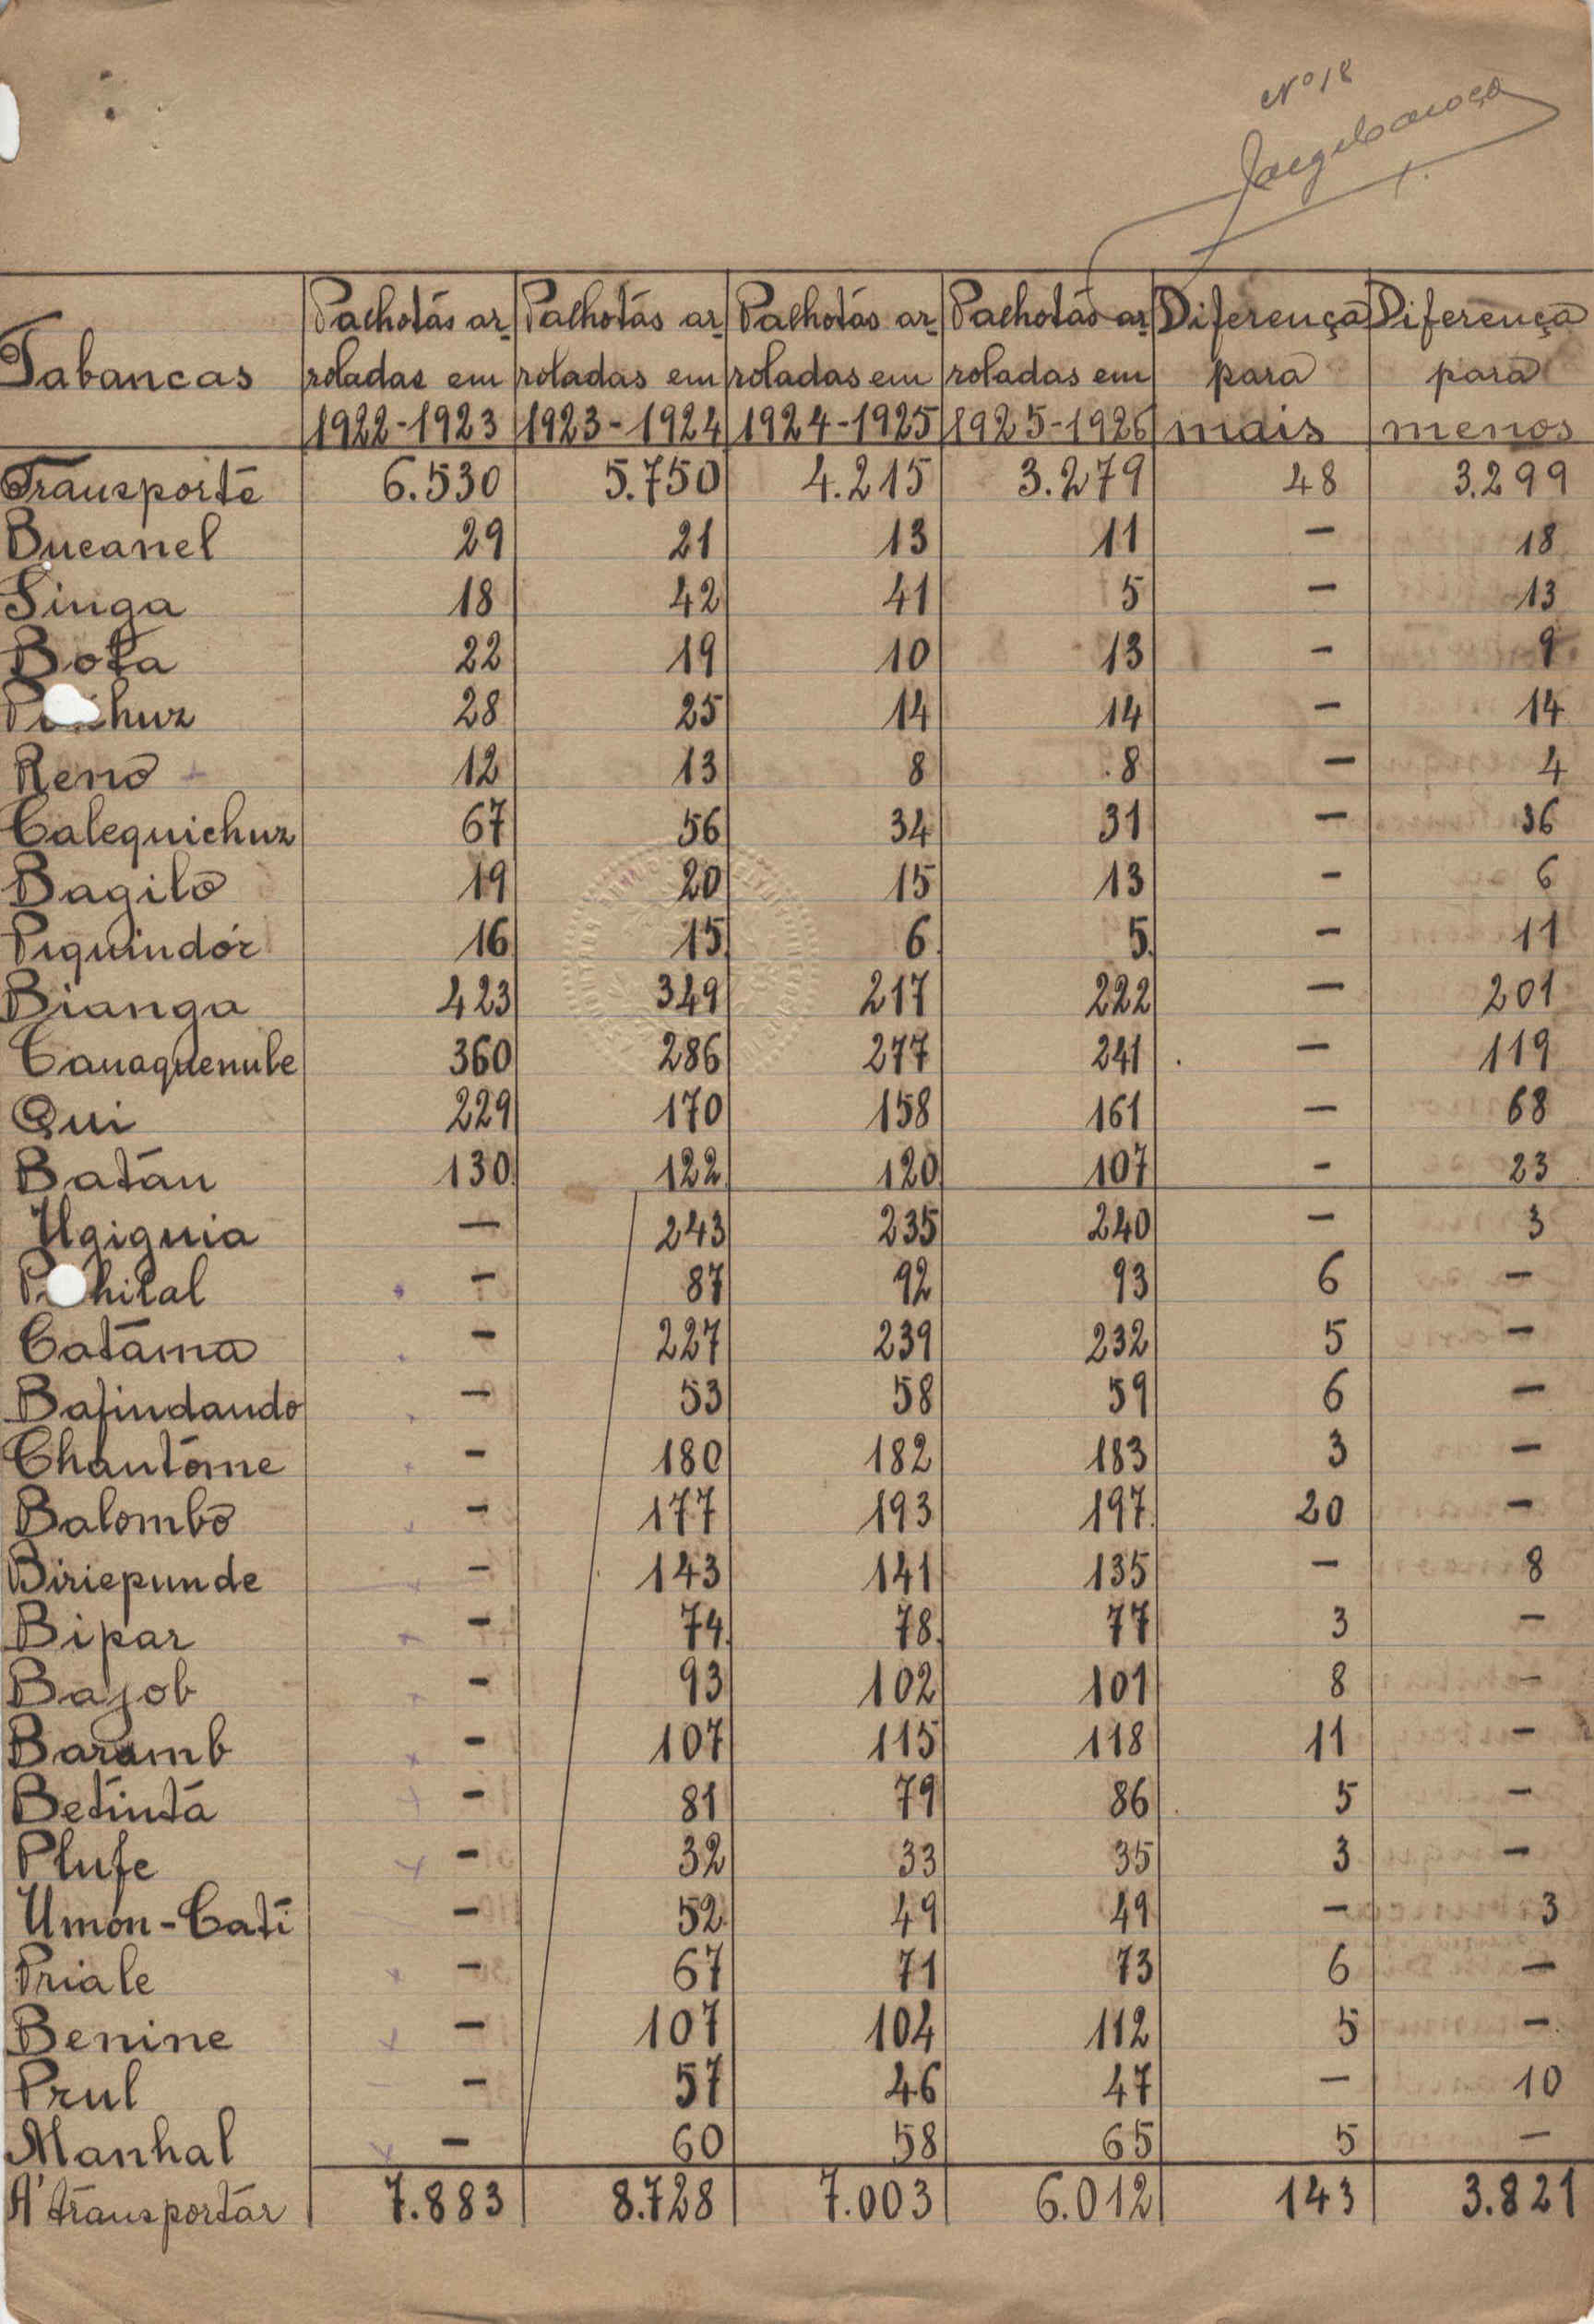 Nº 18
Tabancas | Palhotás ar- roladas em 1922-1923 | Palhotás ar- roladas em 1923-1924 | Palhotás ar- roladas em 1924-1925 | Palhotás ar- roladas em 1925-1926 | Diferença para mais | Diferença para menos
Transporte 6.530 5.750 4.215 3.279 48 3.299
Bucanel 29 21 13 11 - 18
Singa 18 42 41 5 - 13
Bota 22 19 10 13 - 9
28 25 14 14 - 14
Renó 12 13 8 8 - 4
Calequichuz 67 56 34 31 - 36
Bagiló 19 20 15 13 - 6
Piquindór 16 15 6 5 - 11
Bianga 423 349 217 222 - 201
Cauaquenule 360 286 277 241 - 119
Qui 229 170 158 161 - 68
Batáu 130 122 120 107 - 23
Ugiguia - 243 235 240 - 3
- 87 92 93 6 -
Catáma - 227 239 232 5 -
Bafindaudo - 53 58 59 6 -
Chautóme - 180 182 183 3 -
Balombó - 177 193 197 20 -
Biriepunde - 143 141 135 - 8
Bipar - 74 78 77 3 -
Bajob - 93 102 101 8 -
Baramb - 107 115 118 11 -
Betintá - 81 79 86 5 -
Plufe - 32 33 35 3 -
Umón-Cati - 52 49 49 - 3
Priale - 67 71 73 6 -
Benine - 107 104 112 5 -
Prul - 57 46 47 - 10
Manhal - 60 58 65 5 -
A' transportár 7.883 8.728 7.003 6.012 143 3.821